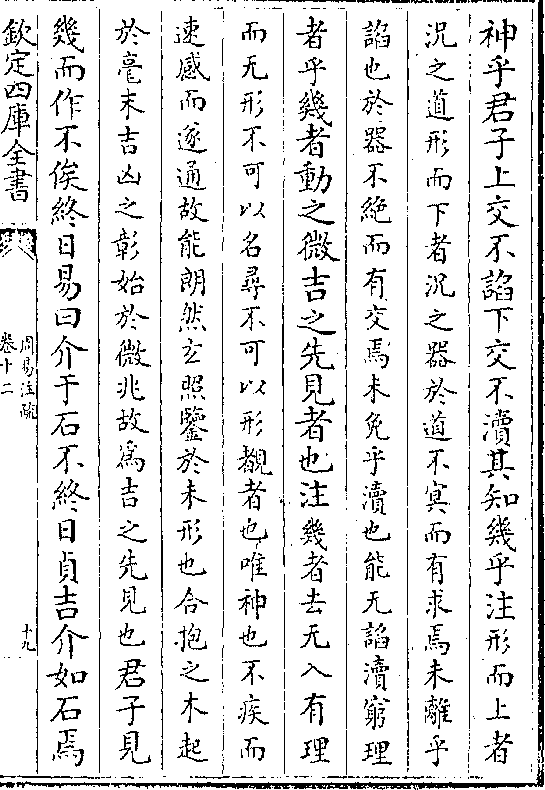 神乎君子上交不諂下交不瀆其知幾乎注形而上者
況之道形而下者況之器於道不冥而有求焉未離乎
諂也於器不絶而有交焉未免乎瀆也能无諂瀆窮理
者乎幾者動之微吉之先見者也注幾者去无入有理
而无形不可以名尋不可以形覩者也唯神也不疾而
速感而遂通故能朗然玄照鑒於未形也合抱之木起
於毫末吉凶之彰始於微兆故爲吉之先見也君子見
幾而作不俟終日易曰介于石不終日貞吉介如石焉
欽定四庫全書
周易注疏
卷十二
十九